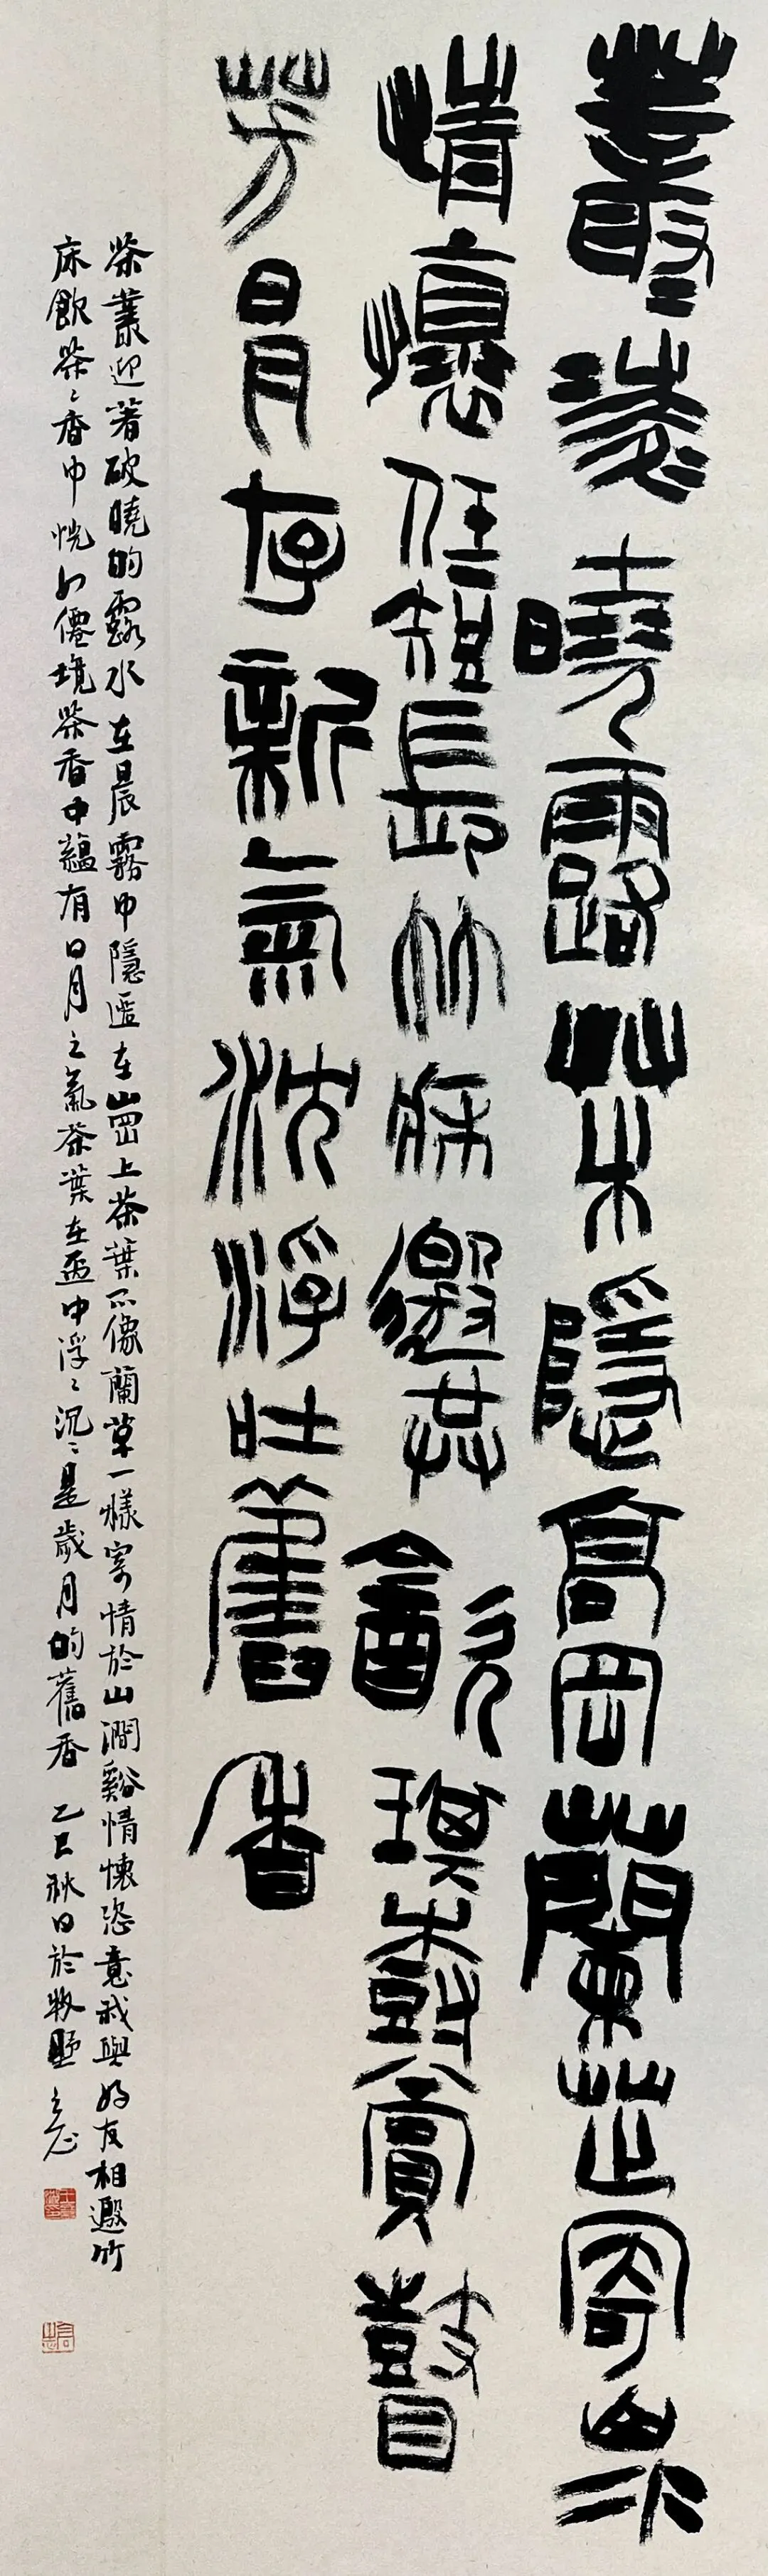 叢曉露茶隱高岡蘭芷寄
情懷任短長竹床邀共飲琪樹賞馨
芳日月存新氣沈浮吐舊香
茶叢迎著破曉的露水在晨霧中隱匿在山岡上茶葉不像蘭草一樣寄情於山澗谿情懷恣意我與好友相邀竹
床飲茶茶香中恍如僊境茶香中蘊有日月之氣茶葉在盃中浮浮沉沉是歲月的舊香 乙巳秋日於牧野